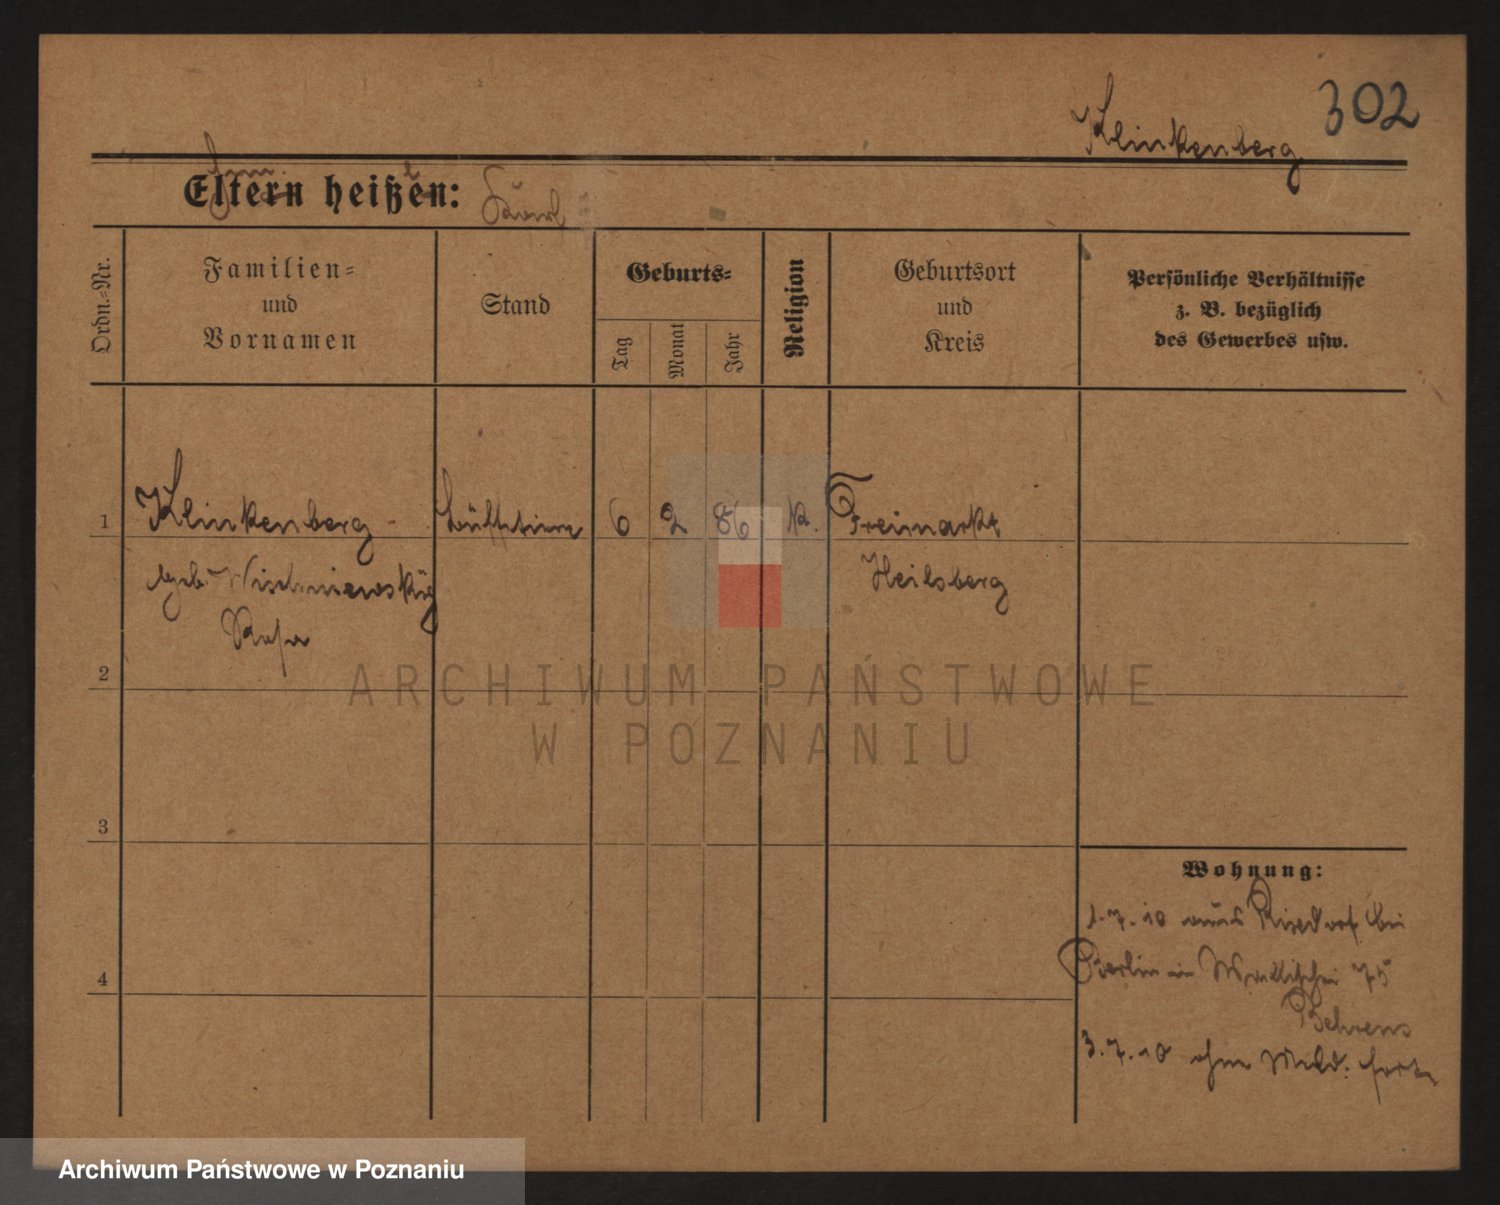 302
Klinkenberg
Eltern heißen: Karl
Ordn.-Nr.
Familien-
und
Vornamen
Stand
Geburts-
Tag
Monat
Jahr
Religion
Geburtsort
und
Kreis
Persönliche Verhältnisse
z. B. bezüglich
des Gewerbes usw.
1
Klinkenberg
6 2 86 k. Freimarkt
geb. Wischniewsky
Heilsberg
Rosa
2
3
4
Wohnung:
1.7.10 aus Rixdorf bei
Berlin in Wallischei 75
Behrens
3.7.10 ohne Meld. fort
ARCHIWUM PAŃSTWOWE
W POZNANIU
Archiwum Państwowe w Poznaniu